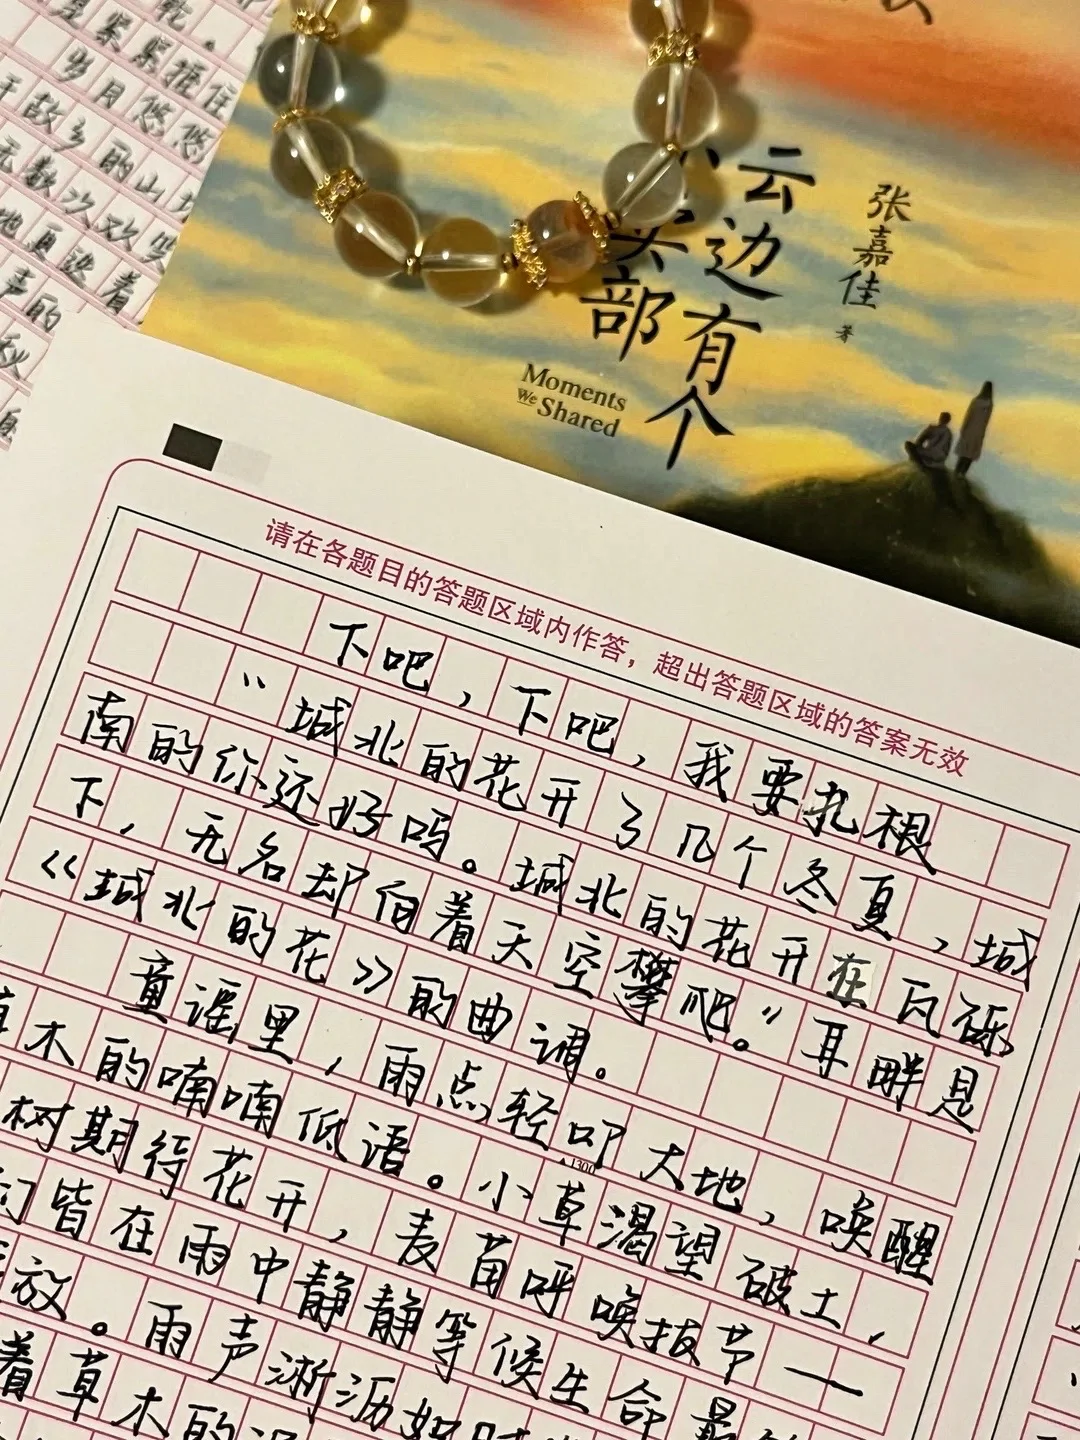 云边有个
部
张嘉佳 著
Moments
We Shared
请在各题目的答题区域内作答，超出答题区域的答案无效
下吧，下吧，我要扎根
“城北的花开了几个冬夏，城
南的你还好吗。城北的花开在瓦砾
下，无名却向着天空攀爬。”耳畔是
《城北的花》的曲调。
童谣里，雨点轻叩大地，唤醒
木的喃喃低语。小草渴望破土，
1300
树期待花开，麦苗呼唤拔节一
们皆在雨中静静等候生命最
放。雨声淅沥
着草木的
紧紧握住
岁月悠悠
故乡的山
无数次欢
地
着
声的